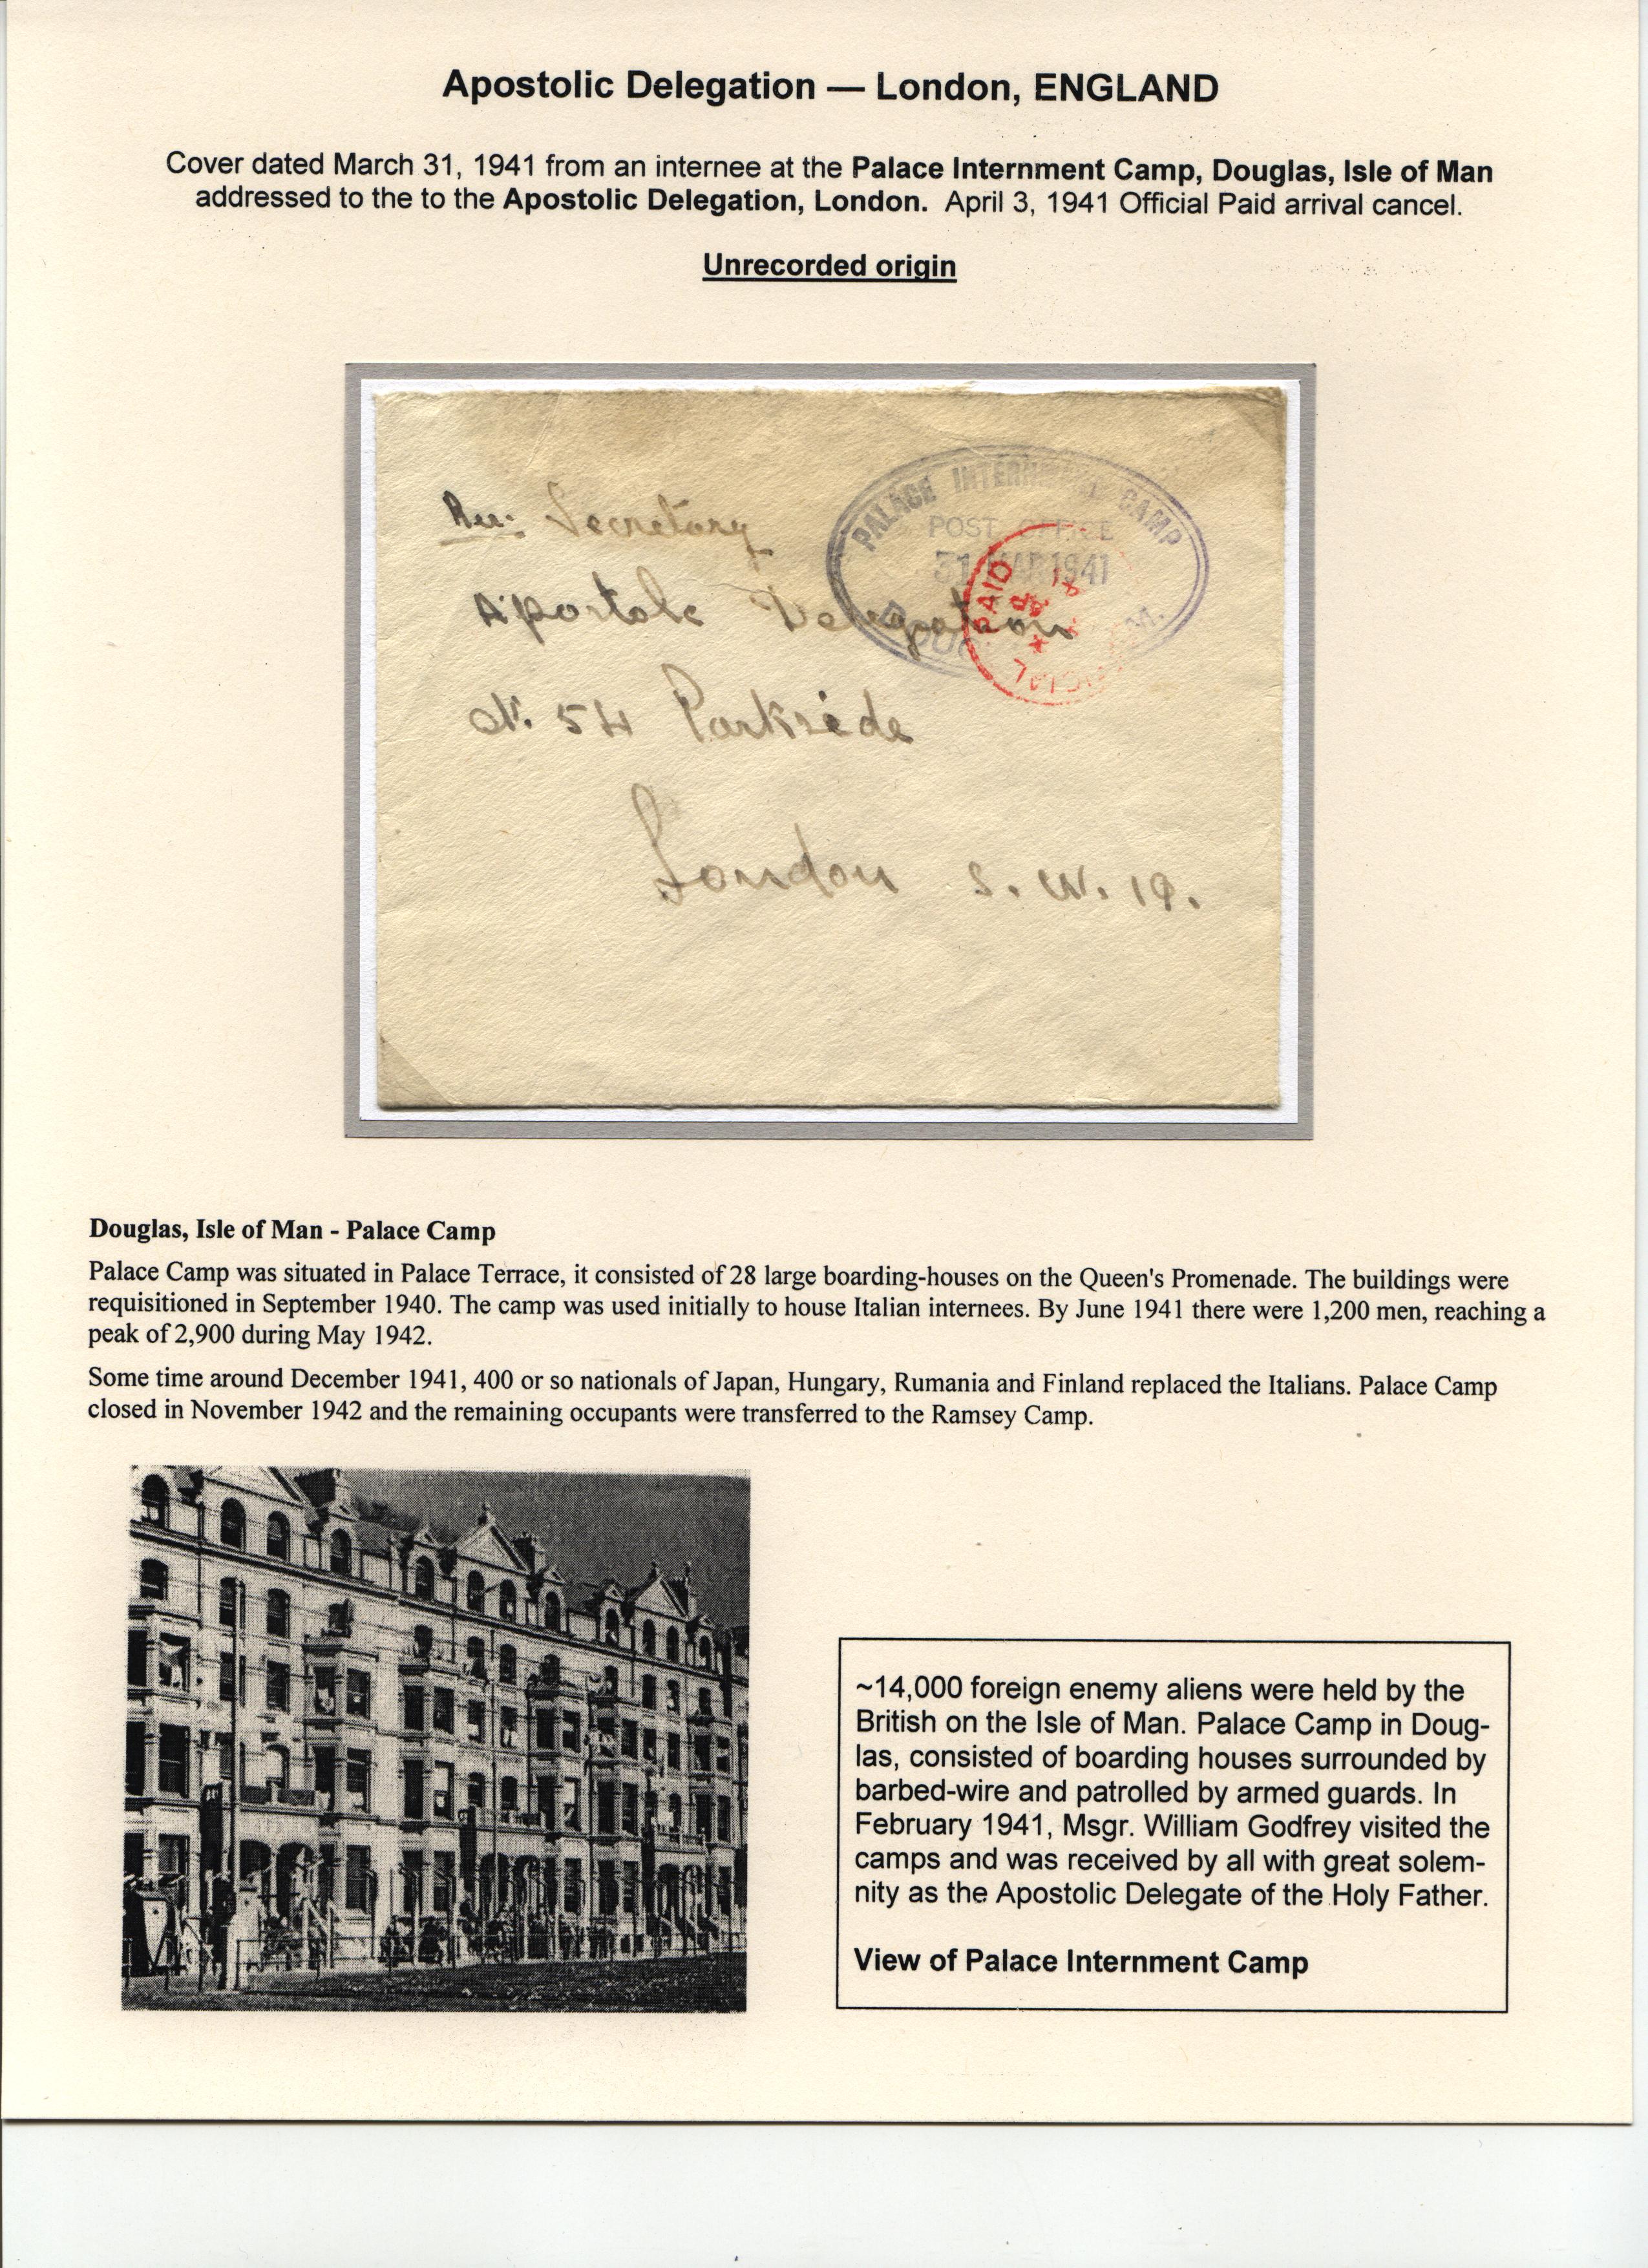 Apostolic Delegation — London, ENGLAND
Cover dated March 31, 1941 from an internee at the Palace Internment Camp, Douglas, Isle of Man
addressed to the to the Apostolic Delegation, London. April 3, 1941 Official Paid arrival cancel.
Unrecorded origin
PALACE INTERNMENT CAMP
POST OFFICE
31 MAR 1941
PAID
Secretary
Apostole Delegation
N. 54 Parkside
London S. W. 19.
Douglas, Isle of Man - Palace Camp
Palace Camp was situated in Palace Terrace, it consisted of 28 large boarding-houses on the Queen's Promenade. The buildings were
requisitioned in September 1940. The camp was used initially to house Italian internees. By June 1941 there were 1,200 men, reaching a
peak of 2,900 during May 1942.
Some time around December 1941, 400 or so nationals of Japan, Hungary, Rumania and Finland replaced the Italians. Palace Camp
closed in November 1942 and the remaining occupants were transferred to the Ramsey Camp.
~14,000 foreign enemy aliens were held by the
British on the Isle of Man. Palace Camp in Doug-
las, consisted of boarding houses surrounded by
barbed-wire and patrolled by armed guards. In
February 1941, Msgr. William Godfrey visited the
camps and was received by all with great solem-
nity as the Apostolic Delegate of the Holy Father.
View of Palace Internment Camp